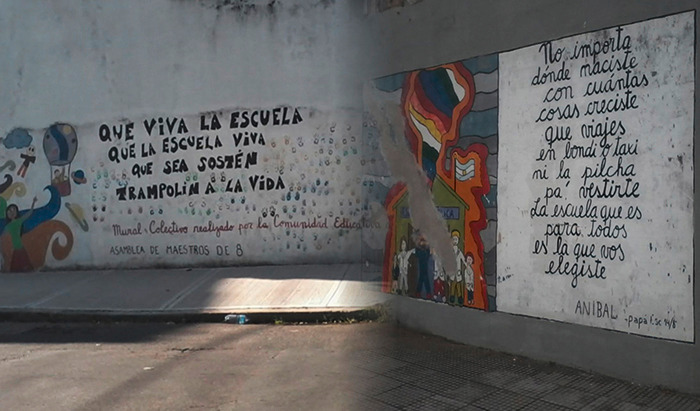 QUE VIVA LA ESCUELA
QUE LA ESCUELA VIVA
QUE SEA SOSTÉN
TRAMPOLÍN A LA VIDA
Mural Colectivo realizado por la Comunidad Educativa
ASAMBLEA DE MAESTROS DE 8
No importa
dónde naciste
con cuántas
cosas creciste
que viajes
en bondi o taxi
ni la pilcha
pa' vestirte
La escuela que es
para todos
es la que vos
elegiste
ANIBAL
papá